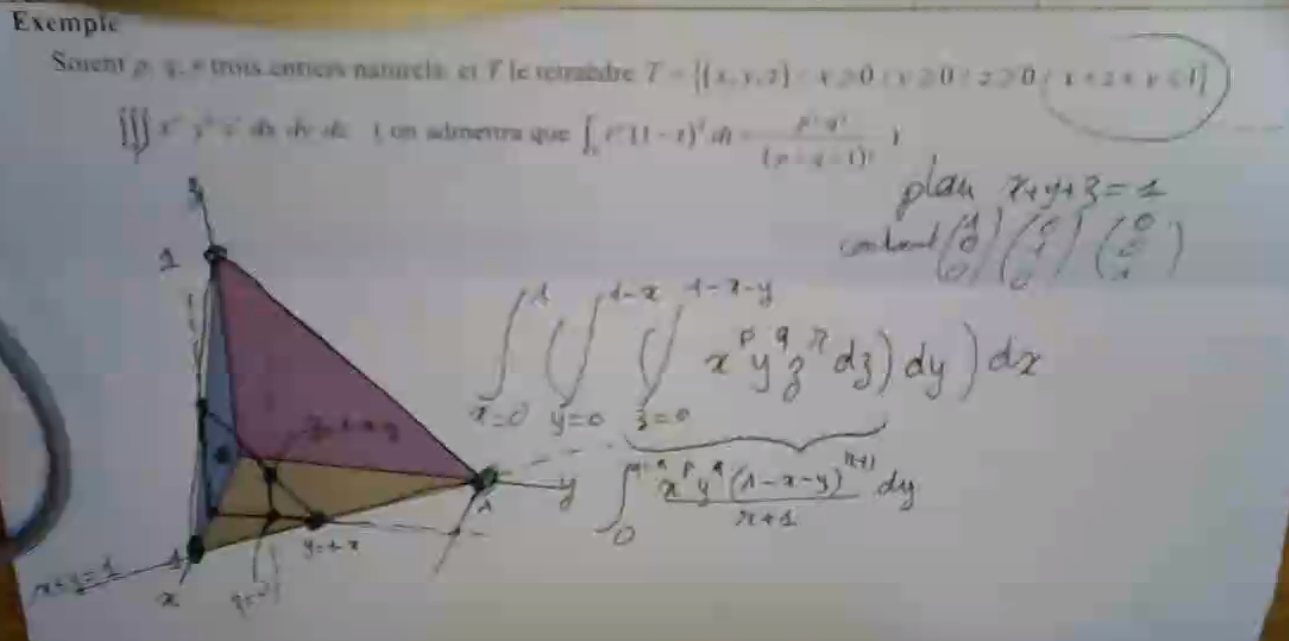 Exemple
Soient p, q, r trois entiers naturels et T le tétraèdre T = {(x, y, z) / x ⩾ 0 / y ⩾ 0 / z ⩾ 0 / x + z + y ⩽ 1}
∭ dx dy dz ( on admettra que ∫ t^p (1 − t)^q dt = p! q! / (p + q + 1)! )
plan x+y+z = 1
contenant (1 0 0) (0 1 0) (0 0 1)
z
1
∫_{x=0}^{1} ( ∫_{y=0}^{1-x} ( ∫_{z=0}^{1-x-y} x^p y^q z^r dz ) dy ) dx
z=1-x-y
∫_0^{1-x} x^p y^q (1-x-y)^{r+1} / r+1 dy
y
1
y=1-x
1
x+y=1
x
z=0